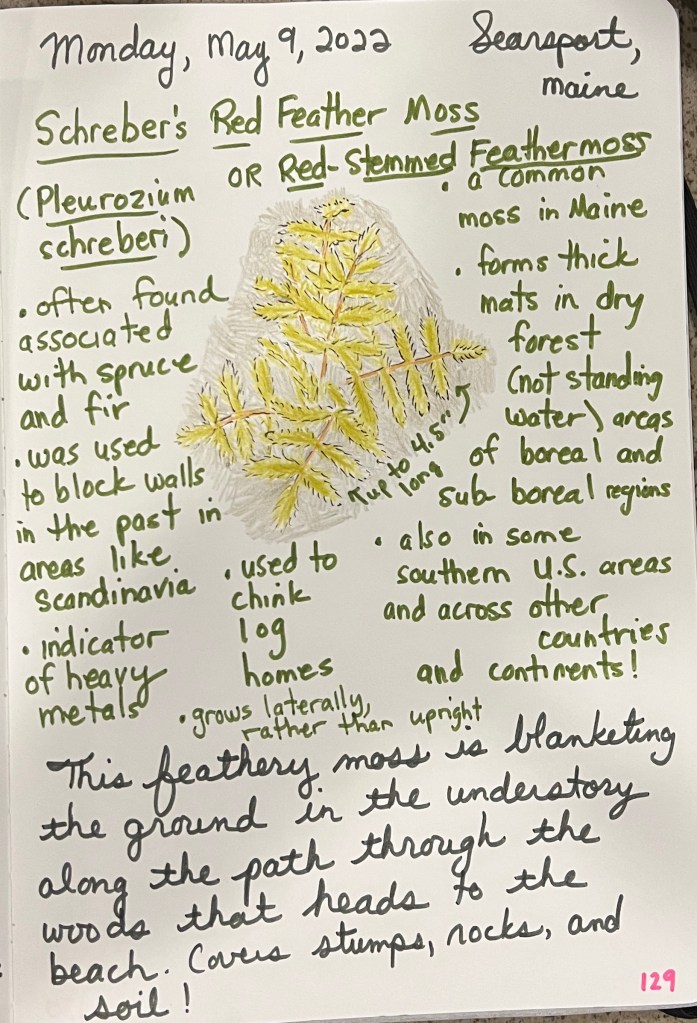 Monday, May 9, 2022
Searsport,
Maine
Schreber's Red Feather Moss
OR Red-Stemmed Feathermoss
(Pleurozium
schreberi)
• often found
associated
with spruce
and fir
• was used
to block walls
in the past in
areas like
Scandinavia
• indicator
of heavy
metals
↑up to 4.5" ↑
long
• used to
chink
log
homes
• grows laterally,
rather than upright
• a common
moss in Maine
• forms thick
mats in dry
forest
(not standing
water) areas
of boreal and
sub boreal regions
• also in some
southern U.S. areas
and across other
countries
and continents!
This feathery moss is blanketing
the ground in the understory
along the path through the
woods that heads to the
beach. Covers stumps, rocks, and
soil!
129